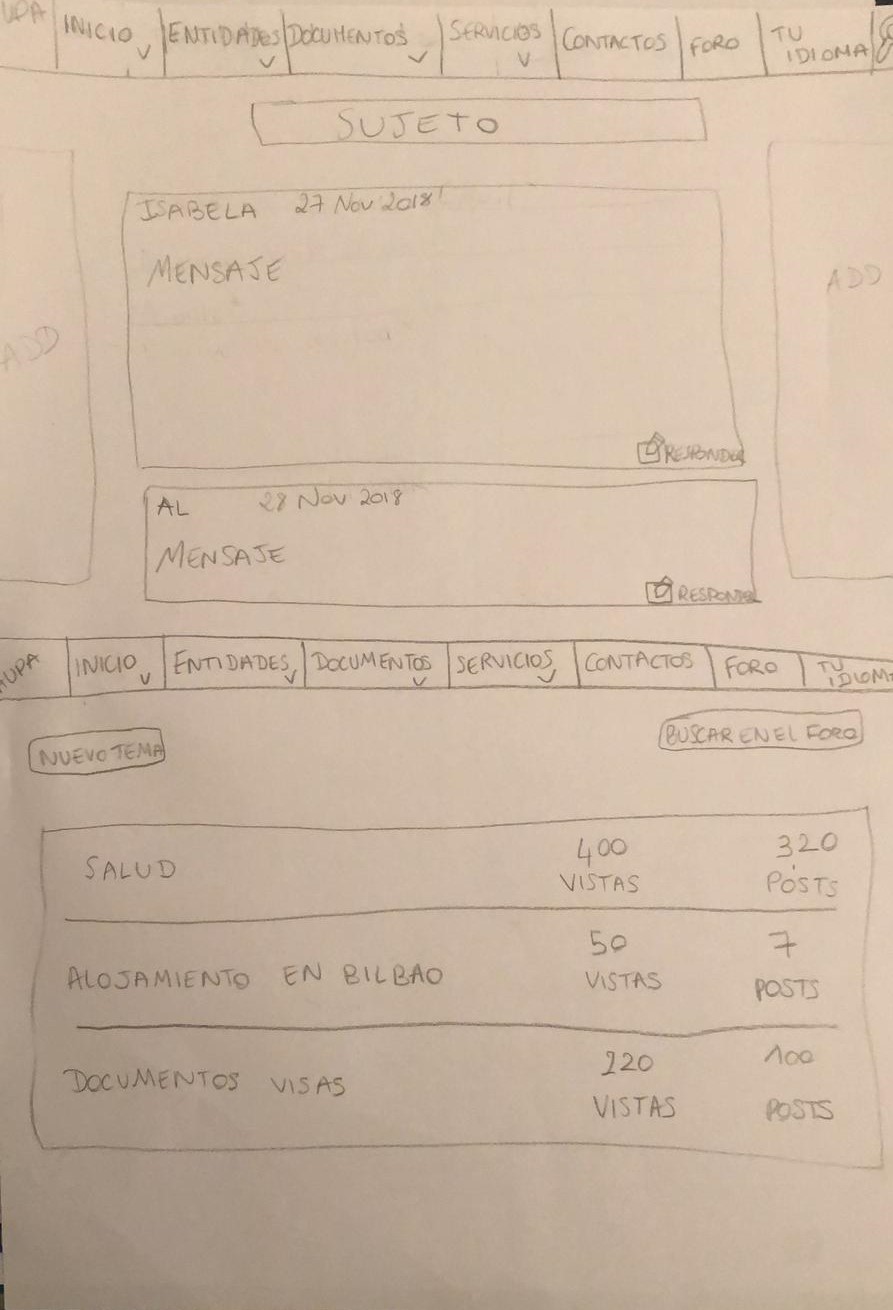 INICIO ENTIDADES DOCUMENTOS SERVICIOS CONTACTOS FORO TU IDIOMA
SUJETO
ISABELA 27 Nov 2018
MENSAJE
ADD
ADD
RESPONDER
AL 28 Nov 2018
MENSAJE
RESPONDER
INICIO ENTIDADES DOCUMENTOS SERVICIOS CONTACTOS FORO TU IDIOMA
NUEVO TEMA BUSCAR EN EL FORO
SALUD 400 VISTAS 320 POSTS
ALOJAMIENTO EN BILBAO 50 VISTAS 7 POSTS
DOCUMENTOS VISAS 220 VISTAS 100 POSTS